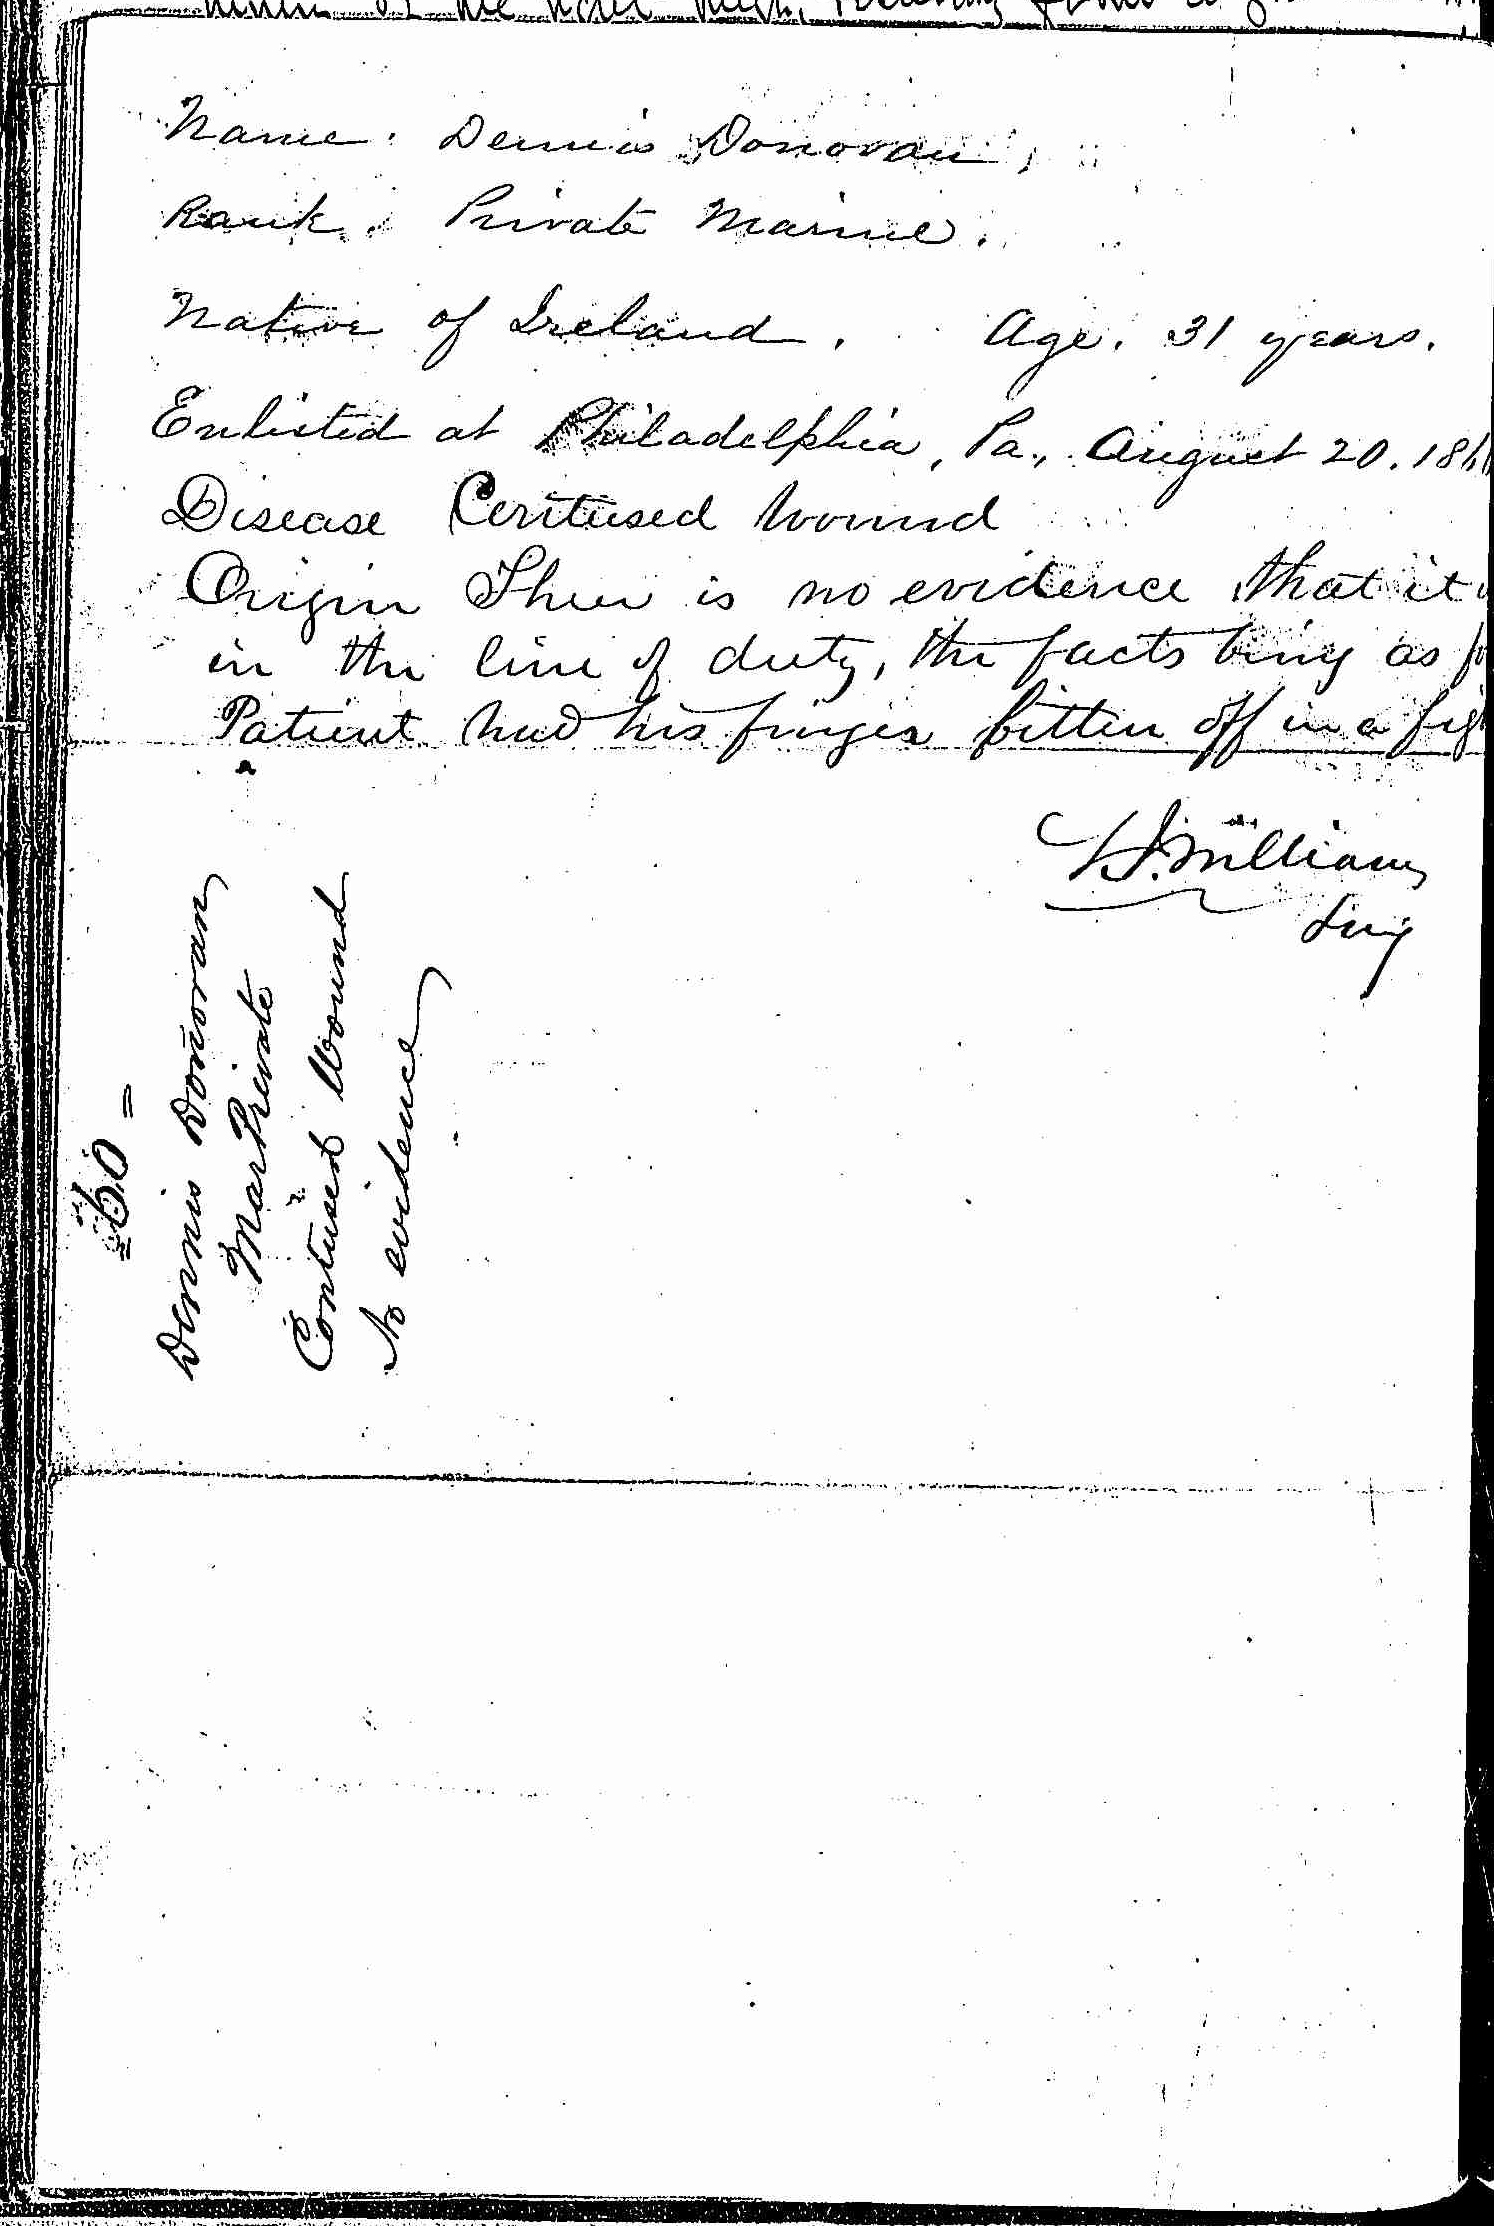 Name. Dennis Donovan,
Rank. Private Marine.
Native of Ireland. Age. 31 years.
Enlisted at Philadelphia, Pa., August 20. 186
Disease Contused Wound
Origin There is no evidence that it
in the line of duty, the facts being as
Patient had his finger bitten off in a
Williams
Surg
Dennis Donovan
Mar Private
Contused Wound
No evidence